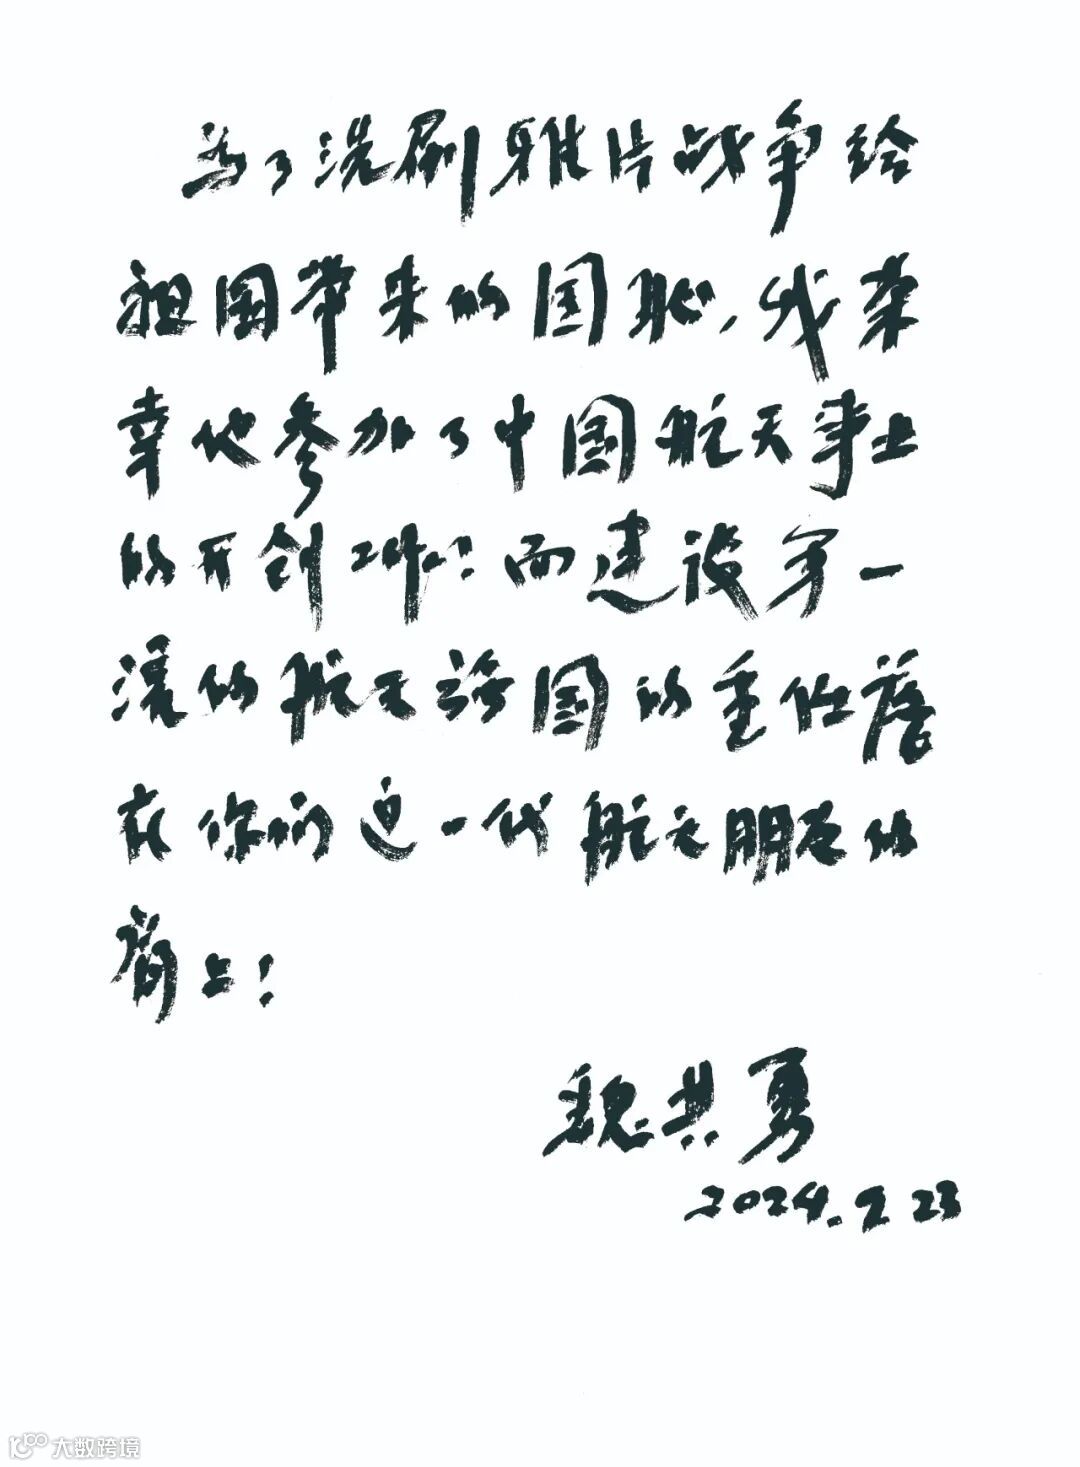 为了洗刷雅片战争给
祖国带来的国耻，我荣
幸地参加了中国航天事业
的开创工作；而建设第一
流的航天强国的重任落
在你们这一代航天朋友的
肩上！
魏其勇
2024.2.23
大数跨境